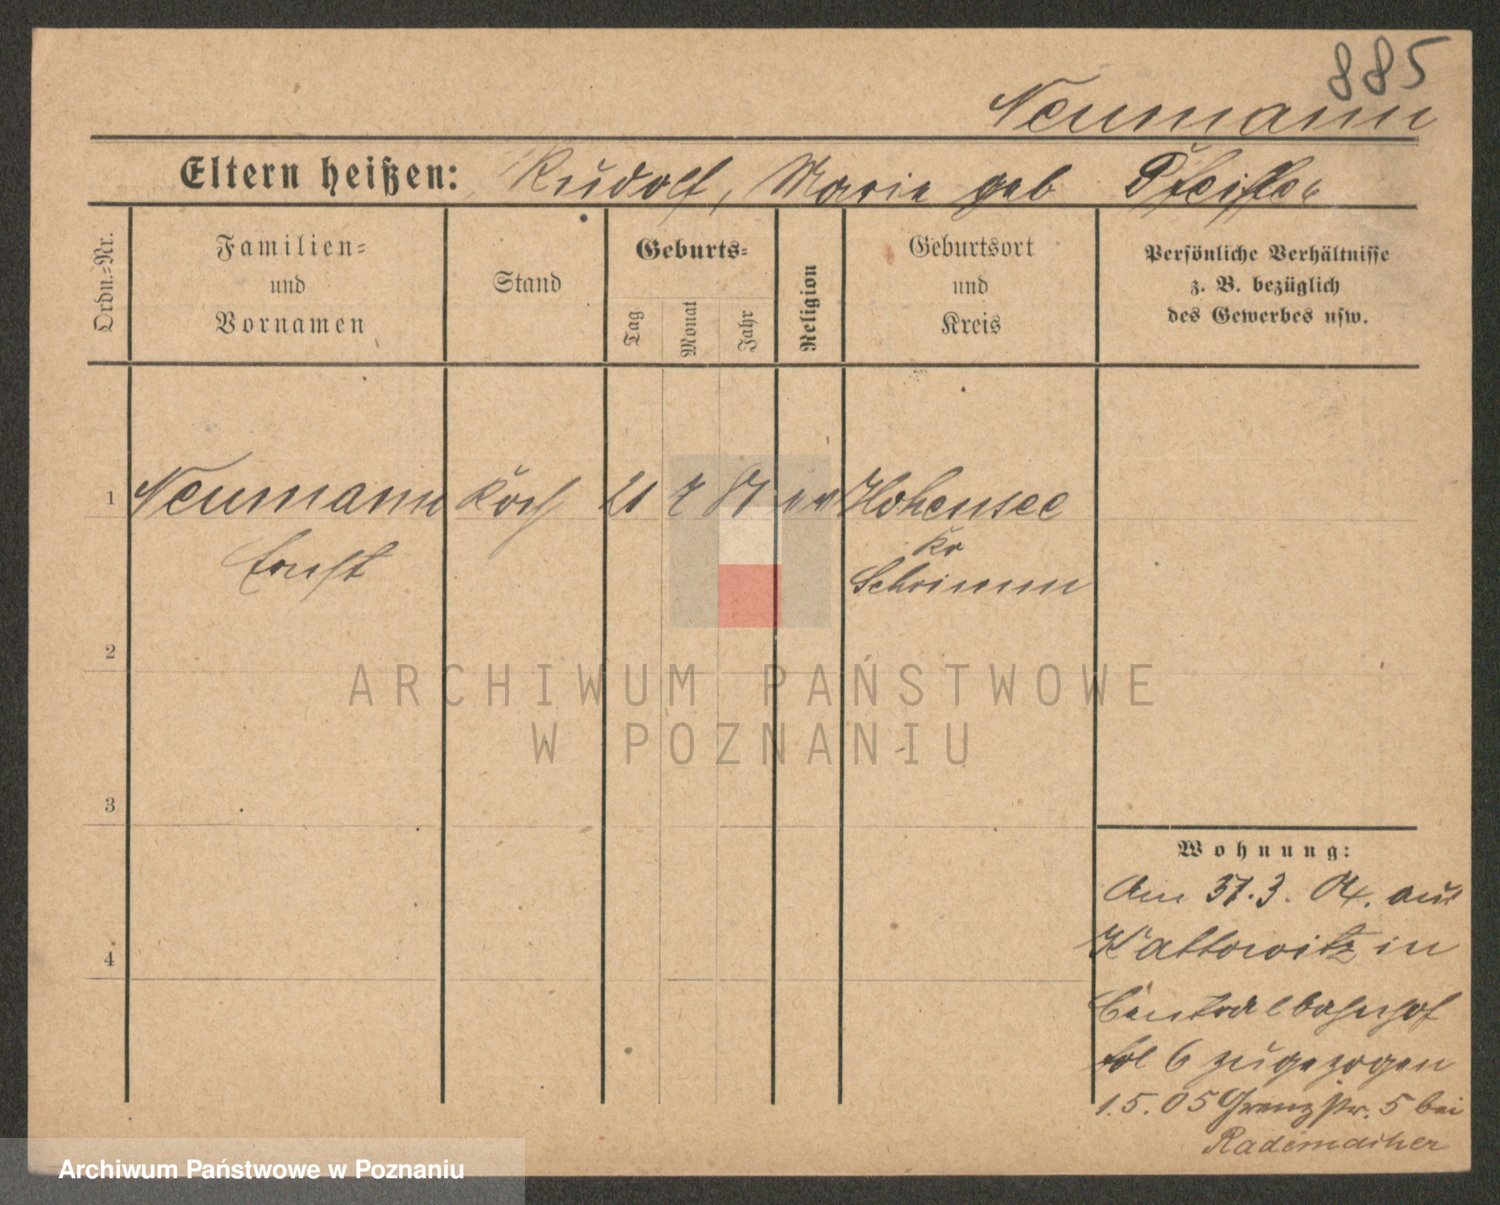 885
Neumann
Eltern heißen: Rudolf, Marie geb Pfeiffer
Ordn.=Nr.
Familien=
und
Vornamen
Stand
Geburts=
Tag
Monat
Jahr
Religion
Geburtsort
und
Kreis
Persönliche Verhältnisse
z. B. bezüglich
des Gewerbes usw.
1 Neumann Koch 21 7 87 ev Hohensee
Ernst
Kr
Schrimm
2
ARCHIWUM PAŃSTWOWE
W POZNANIU
3
Wohnung:
Am 31.3. 04. aus
Kattowitz in
4
Centralbahnhof
6 zugezogen
1.5.05 Grenzstr. 5 bei
Rademacher
Archiwum Państwowe w Poznaniu